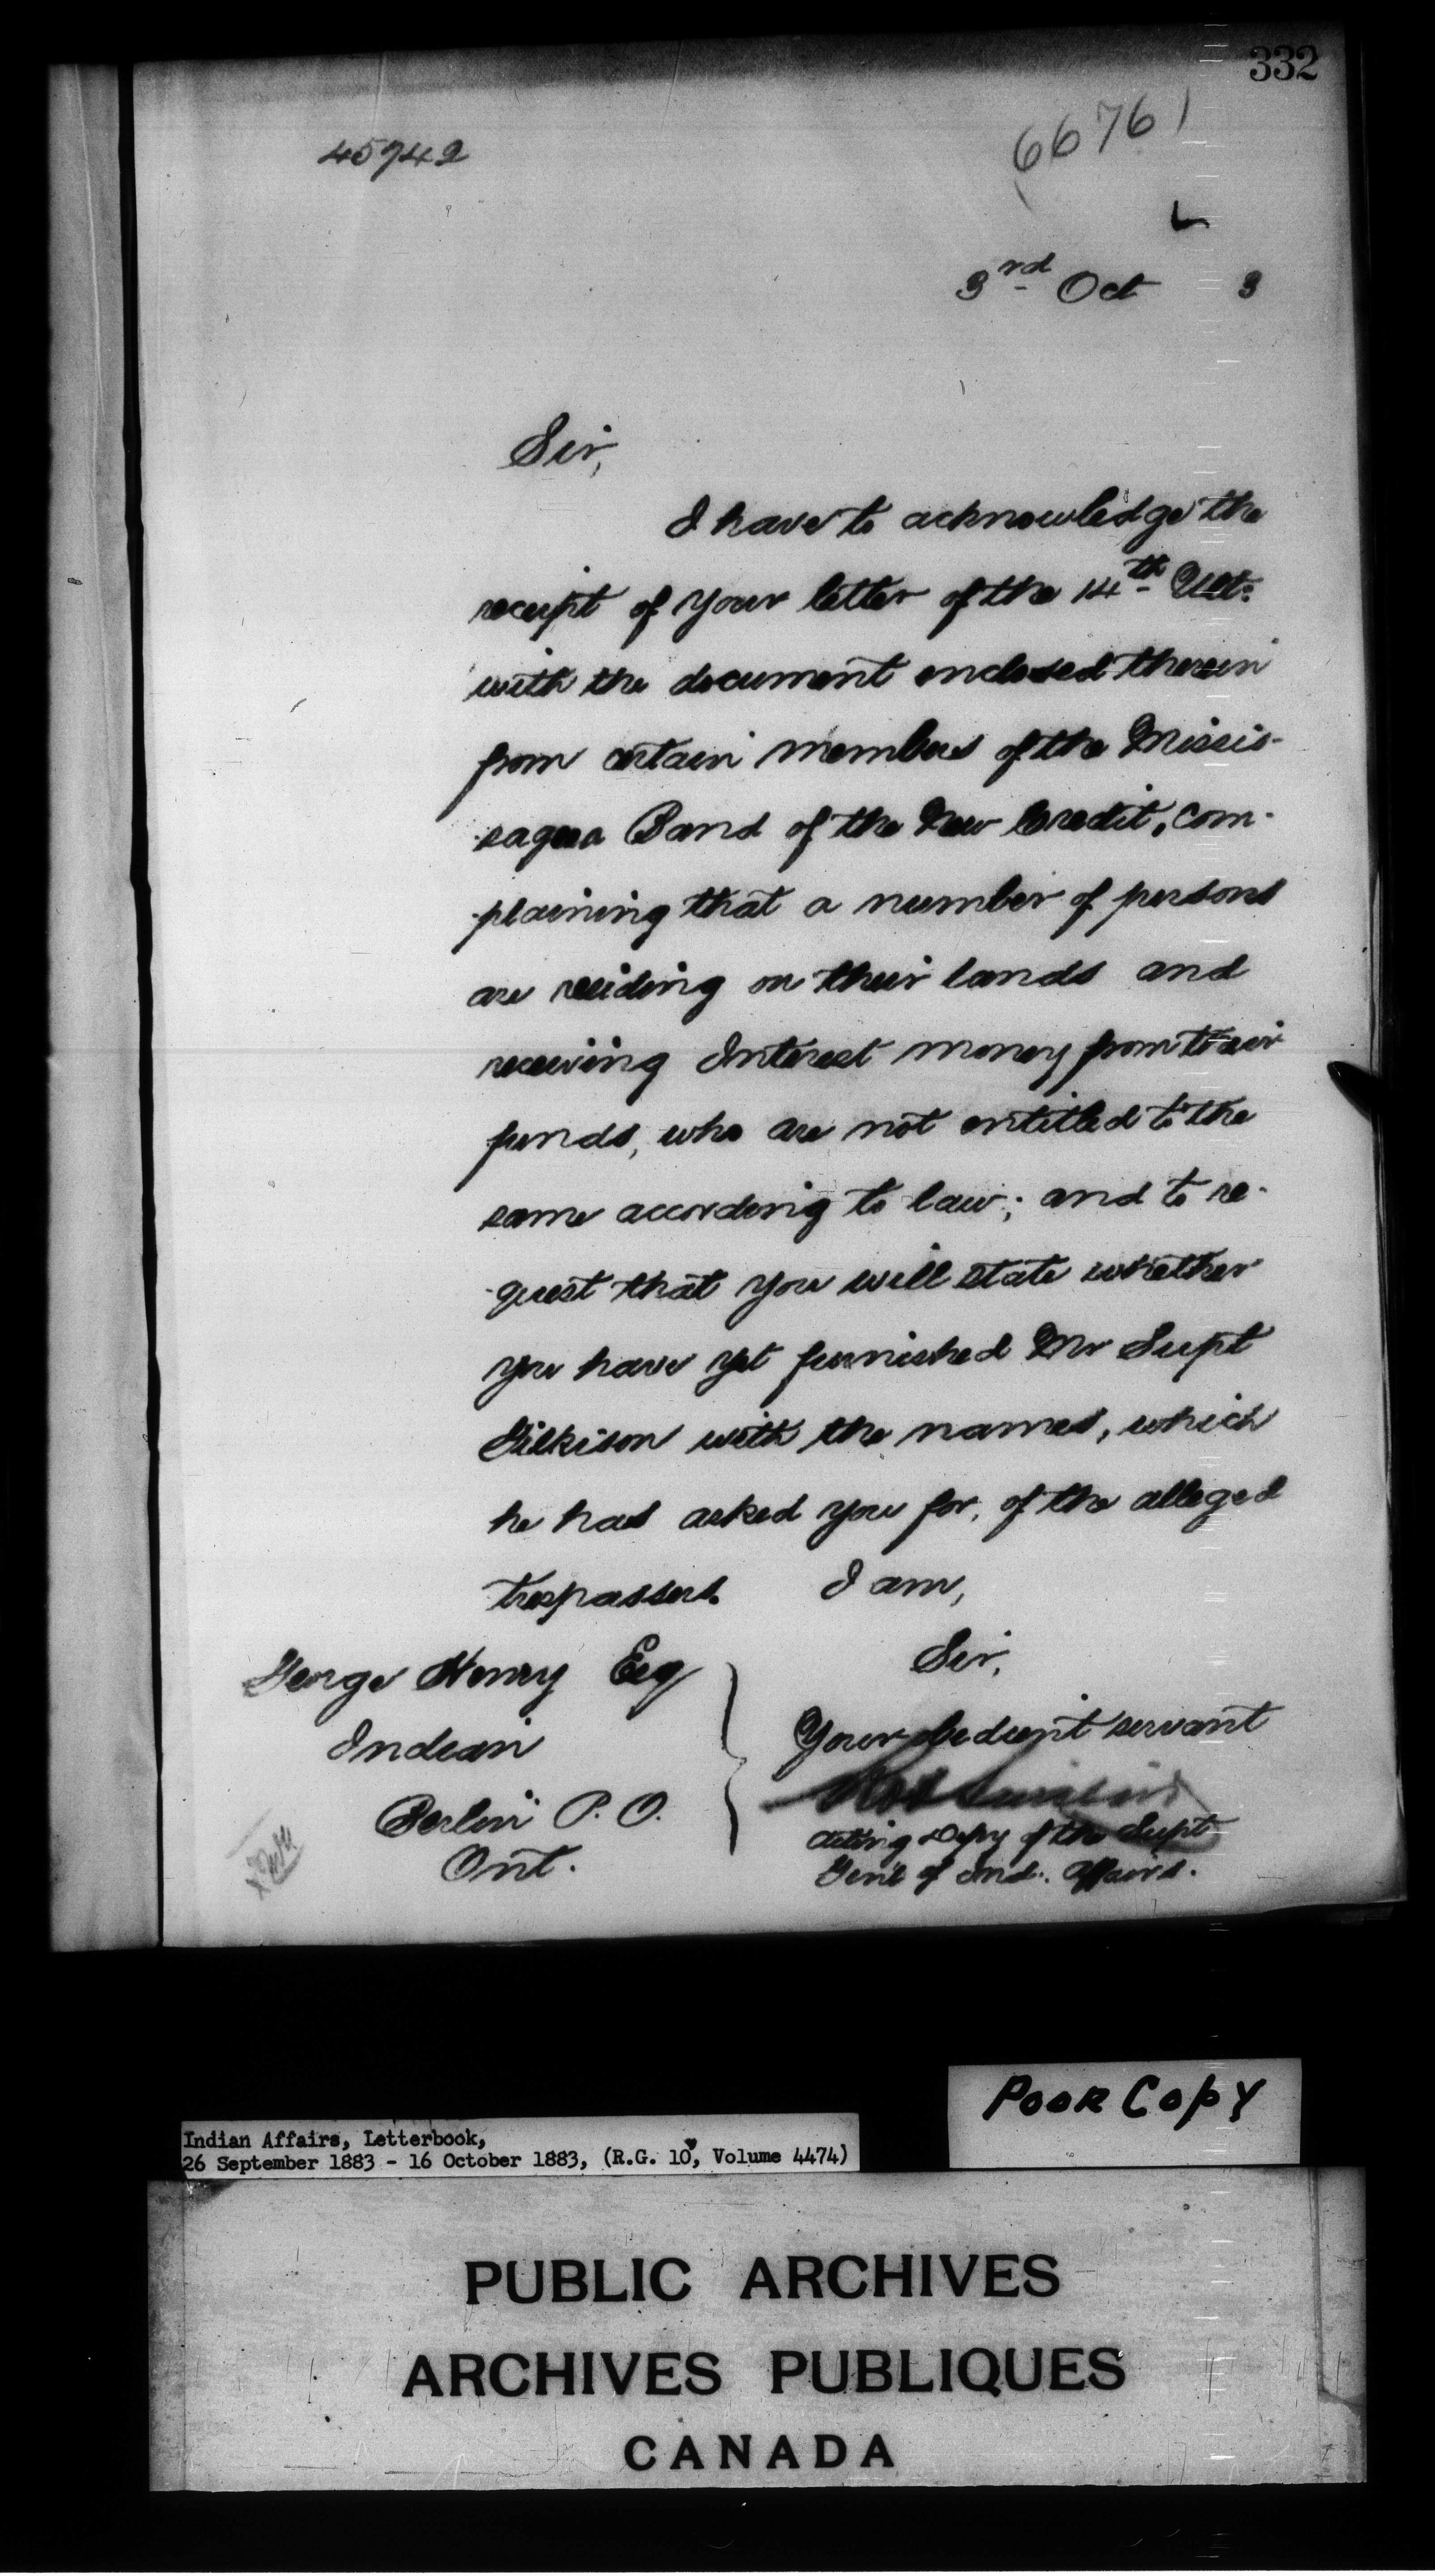 332
45742
66761
3rd Oct 3
Sir,
I have to acknowledge the
receipt of your letter of the 14th Ult:
with the document enclosed therein
from certain members of the Missis-
sagua Band of the New Credit, com-
plaining that a number of persons
are residing on their lands and
receiving Interest money from their
funds, who are not entitled to the
same according to law; and to re-
quest that you will state whether
you have yet furnished Mr Supt
Gilkison with the names, which
he has asked you for, of the alleged
trespassers. I am,
Sir,
George Henry Esq
Your obedient servant
Indian
Berlin P. O.
Acting Depy of the Supt
Ont.
Genl of Ind. Affairs.
Poor Copy
Indian Affairs, Letterbook,
26 September 1883 - 16 October 1883, (R.G. 10, Volume 4474)
PUBLIC ARCHIVES
ARCHIVES PUBLIQUES
CANADA